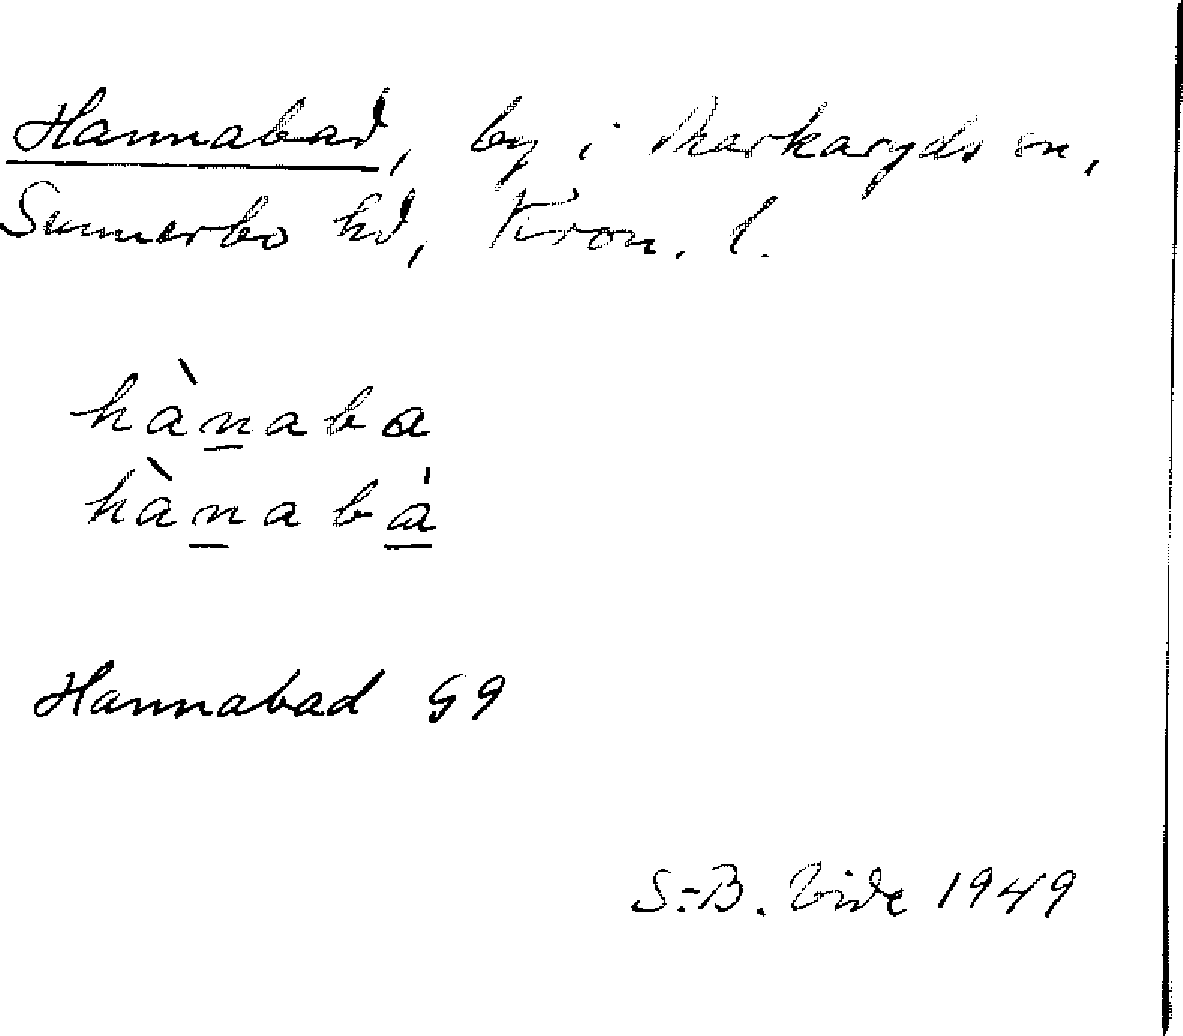 Hannabad, by i Markaryds sn,
Sunnerbo hd, Kron. l.
hànaba
hànabá
Hannabad G9
S.-B. Vide 1949